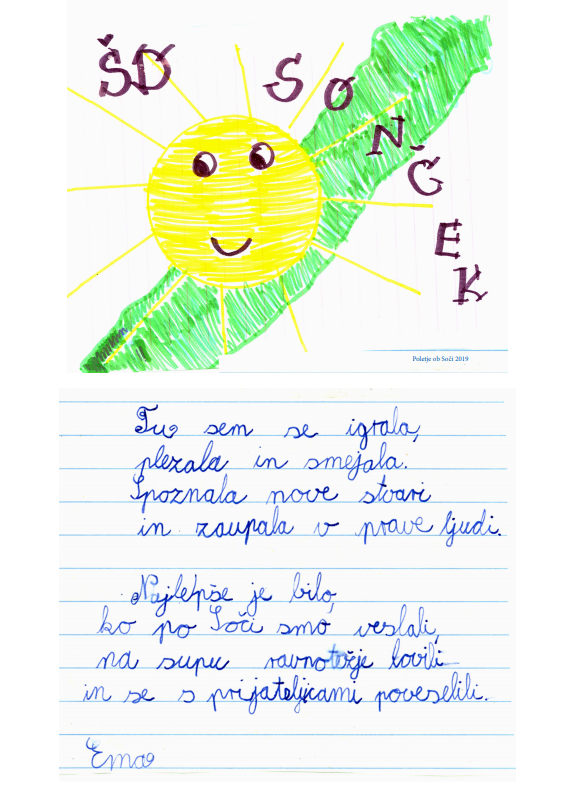 ŠD SONČEK
Poletje ob Soči 2019
Tu sem se igrala,
plezala in smejala.
Spoznala nove stvari
in zaupala v prave ljudi.
Najlepše je bilo,
ko po Soči smo veslali,
na supu ravnotežje lovili
in se s prijateljicami poveselili.
Ema